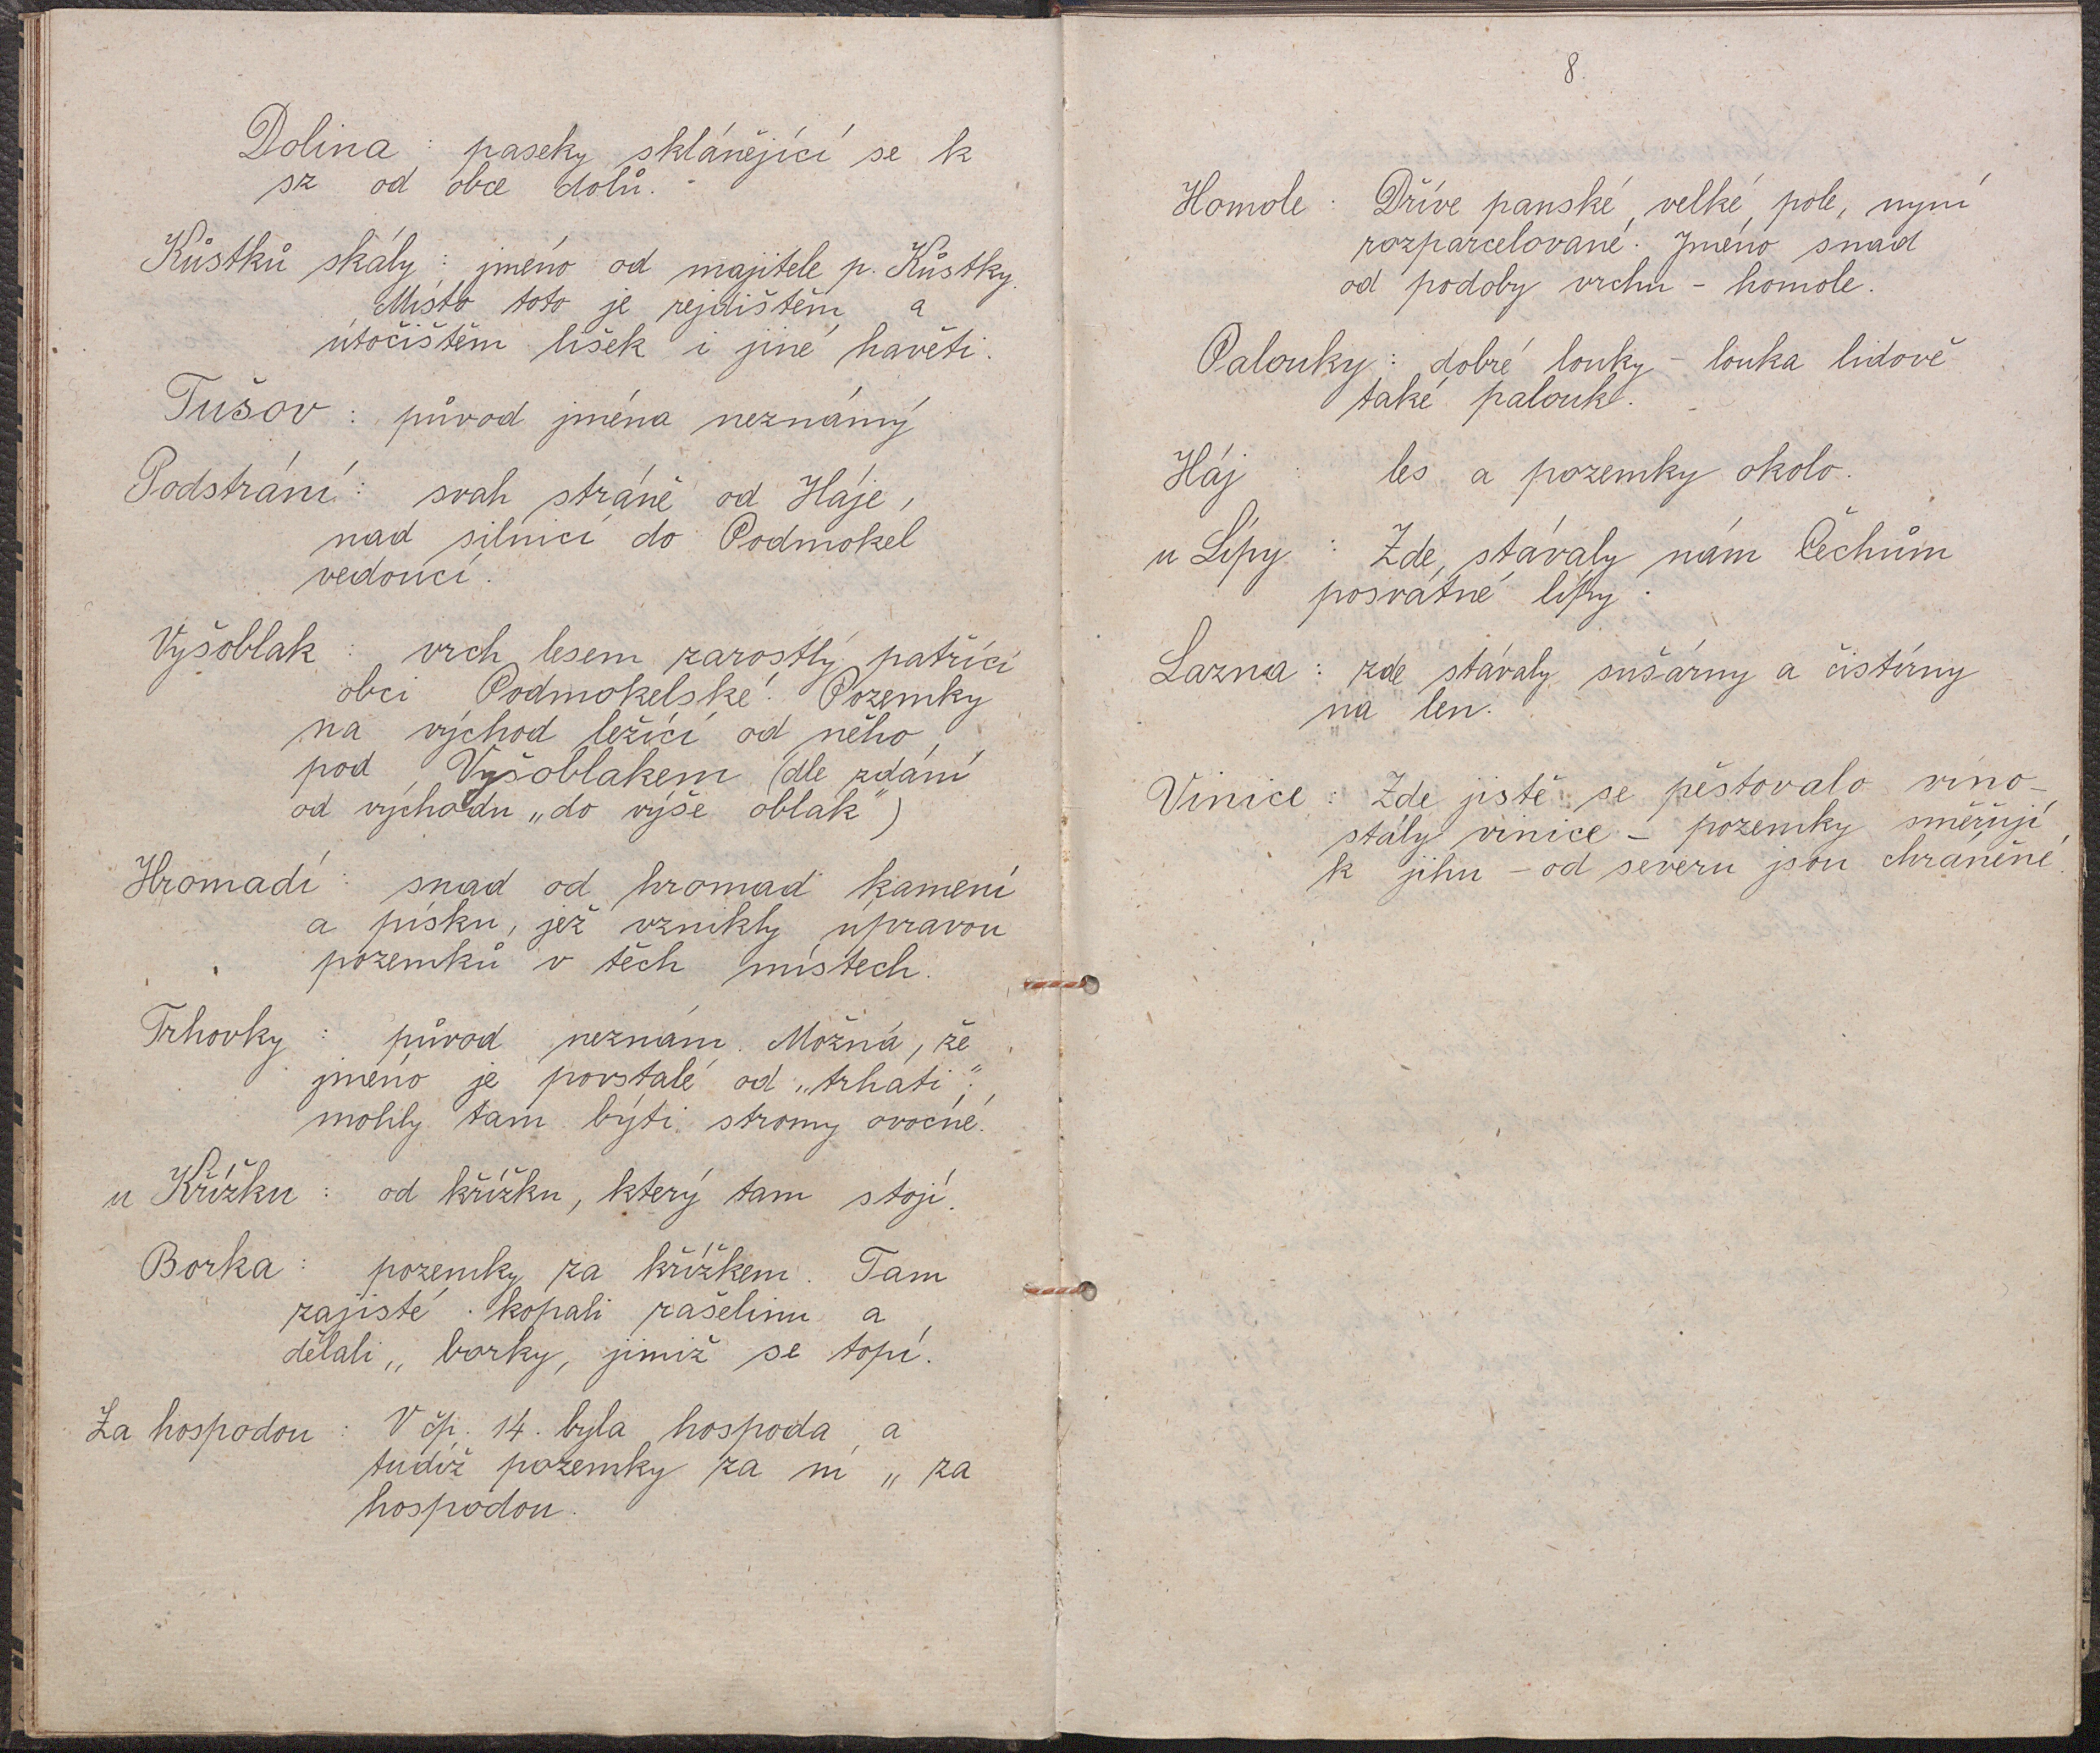 Dolina : paseky sklánějící se k
sz od obce dolů.
Kůstků skály : jméno od majitele p. Kůstky.
Místo toto je rejdištěm a
útočištěm lišek i jiné havěti.
Tušov : původ jména neznámý
Podstrání : svah stráně od Háje,
nad silnicí do Podmokel
vedoucí.
Vyšoblak : vrch lesem zarostlý patřící
obci Podmokelské. Pozemky
na východ ležící od něho,
pod Vyšoblakem (dle zdání
od východu „do výše oblak")
Hromadí : snad od hromad kamení
a písku, jež vznikly úpravou
pozemků v těch místech.
Trhovky : původ neznám. Možná, že
jméno je povstalé od „trhati";
mohly tam býti stromy ovocné.
u Křížku : od křížku, který tam stojí.
Borka : pozemky za křížkem. Tam
zajisté kopali rašelinu a
dělali „ borky, jimiž se topí.
Za hospodou : V čp. 14. byla hospoda a
tudíž pozemky za ní „ za
hospodou.
8.
Homole : Dříve panské, velké pole, nyní
rozparcelované. Jméno snad
od podoby vrchu - homole.
Palouky : dobré louky - louka lidově
také palouk.
Háj : les a pozemky okolo.
u Lípy : Zde stávaly nám Čechům
posvátné lípy.
Lazna : zde stávaly sušárny a čistírny
na len.
Vinice : Zde jistě se pěstovalo víno -
stály vinice - pozemky směřují
k jihu - od severu jsou chráněné.